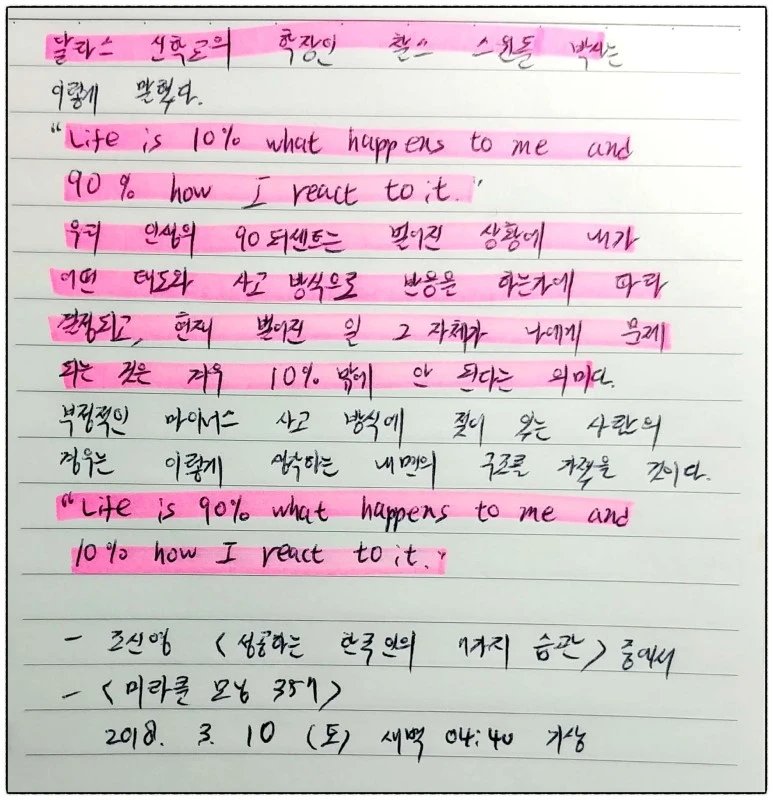 달라스 신학교의 학장인 찰스 스윈돌 박사는
이렇게 말했다.
"Life is 10% what happens to me and
90% how I react to it."
우리 인생의 90퍼센트는 벌어진 상황에 내가
어떤 태도와 사고 방식으로 반응을 하는가에 따라
결정되고, 현재 벌어진 일 그 자체가 나에게 문제
되는 것은 겨우 10% 밖에 안 된다는 의미다.
부정적인 마이너스 사고 방식에 젖어 있는 사람의
경우는 이렇게 생각하는 내면의 구조를 가졌을 것이다.
"Life is 90% what happens to me and
10% how I react to it."
- 조신영 <성공하는 한국인의 7가지 습관> 중에서
- <미라클 모닝 357>
2018. 3. 10 (토) 새벽 04:40 기상